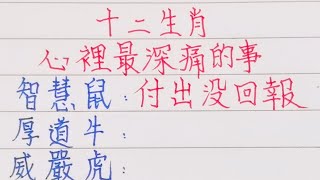 十二生肖
心裡最深痛的事
智慧鼠：付出没回報
厚道牛：
威嚴虎：